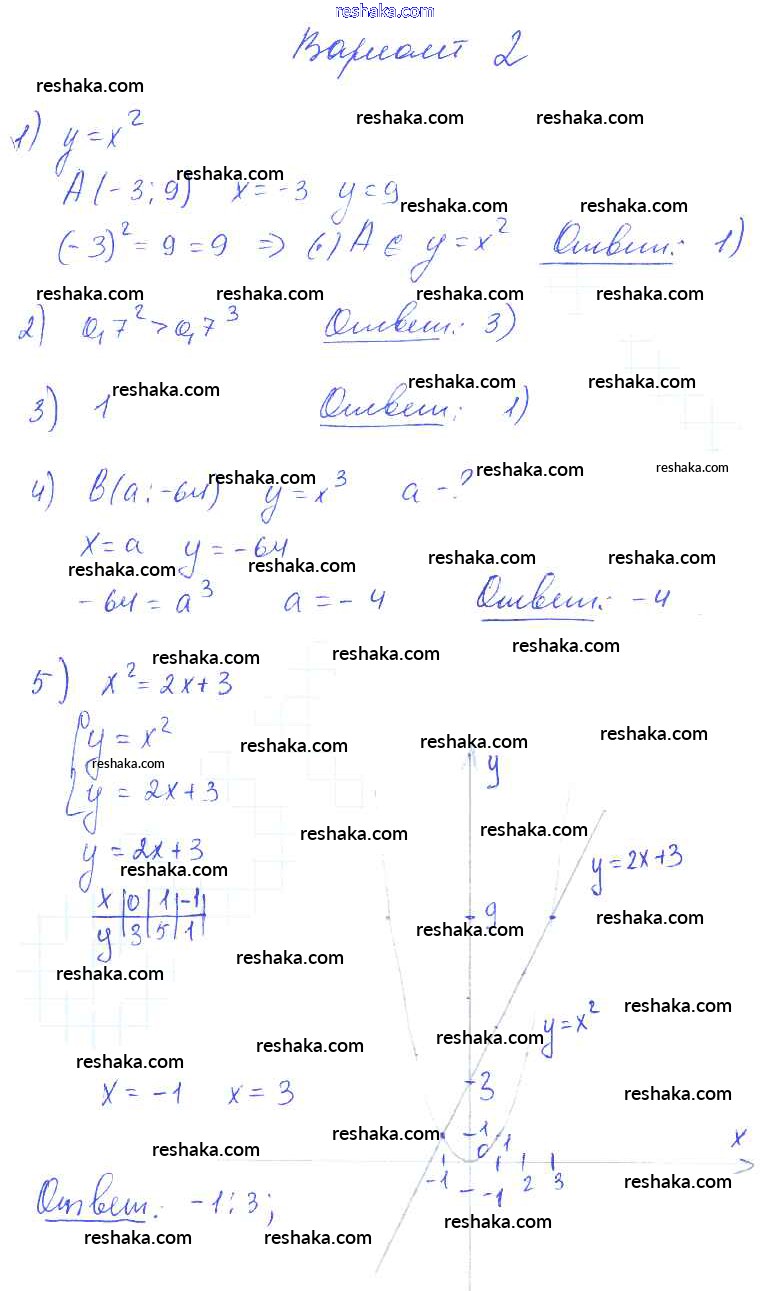 reshaka.com
Вариант 2
reshaka.com
1) y = x²
reshaka.com reshaka.com
reshaka.com
A(-3; 9) x = -3 y = 9
reshaka.com reshaka.com
(-3)² = 9 = 9 ⇒ (·) A ∈ y = x² Ответ: 1)
reshaka.com reshaka.com reshaka.com reshaka.com
2) 0,7² > 0,7³ Ответ: 3)
reshaka.com reshaka.com reshaka.com
3) 1 Ответ: 1)
reshaka.com reshaka.com reshaka.com
4) B(a; -64) y = x³ a - ?
x = a y = -64
reshaka.com reshaka.com reshaka.com reshaka.com
-64 = a³ a = -4 Ответ: -4
reshaka.com reshaka.com reshaka.com
5) x² = 2x+3
y = x²
reshaka.com reshaka.com reshaka.com
reshaka.com
y = 2x+3
y
reshaka.com reshaka.com
y = 2x+3
y = 2x+3
reshaka.com
x 0 1 -1
y 3 5 1
9
reshaka.com reshaka.com
reshaka.com reshaka.com
reshaka.com
y = x²
reshaka.com reshaka.com
reshaka.com
x = -1 x = 3
3
reshaka.com
reshaka.com reshaka.com
1
0 1 x
-1 2 3
-1
reshaka.com
Ответ: -1; 3;
reshaka.com reshaka.com reshaka.com